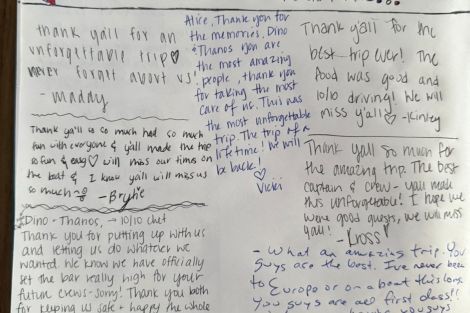 thank yall for an
unforgettable trip♡
never forget about us!
- maddy
Thank ya'll so so much had so much
fun with everyone & y'all made the trip
so fun & easy♡ will miss our times on
the boat & I know yall will miss us
so much - Brylie
Dino + Thanos, → 10/10 chef
Thank you for putting up with us
and letting us do whatever we
wanted. We know we have officially
set the bar really high for your
future crews - sorry! Thank you both
for keeping us safe + happy the whole
Alice, Thank you for
the memories. Dino
& Thanos you are
the most amazing
people, thank you
for taking the most
care of us. This was
the most unforgettable
trip. The trip of a
lifetime! We will
be back!
♡ Vicki
Thank y'all for the
best trip ever! The
food was good and
10/10 driving! We will
miss y'all♡ - Kinley
Thank yall so much for
the amazing trip. The best
captain & crew - yall made
this unforgettable! I hope we
were good guests, we will miss
yall! - Kross♡
- What an amazing trip. You
guys are the best. I've never been
to Europe or on a boat this long.
You guys are all first class!!
you guys